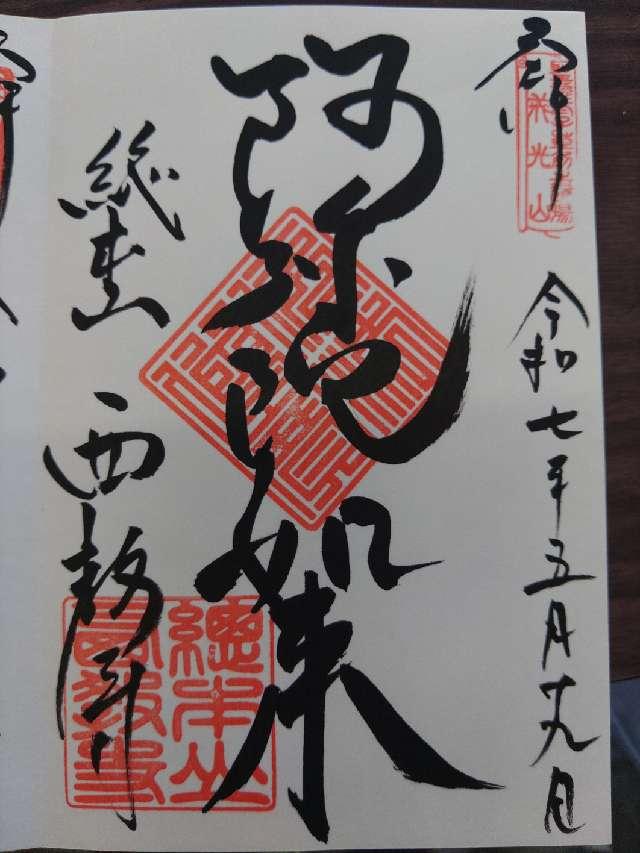 奉拝
戒光山
令和七年五月廿九日
阿弥陀如来
総本山 西教寺
總本山
西教寺